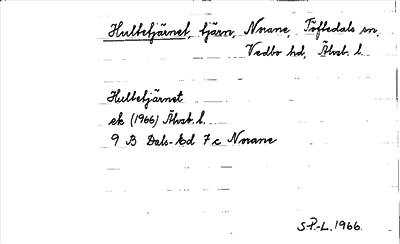 Hultetjärnet, tjärn, Norane, Töftedals sn,
Vedbo hd, Älvsb. l.
Hultetjärnet
ek (1966) Älvsb. l.
9 B Dals-Ed 7 c Norane
S.P.-L. 1966.